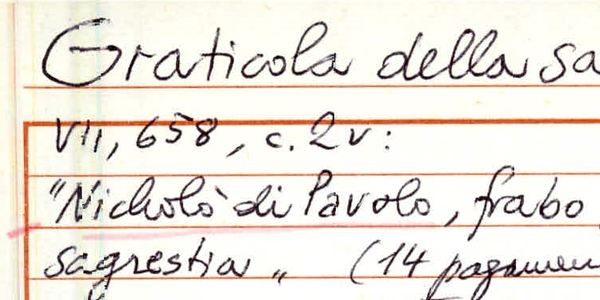 Graticola della sa
VII, 658, c. 2v:
"Nicholò di Pavolo, frabo
sagrestia" (14 pagamen